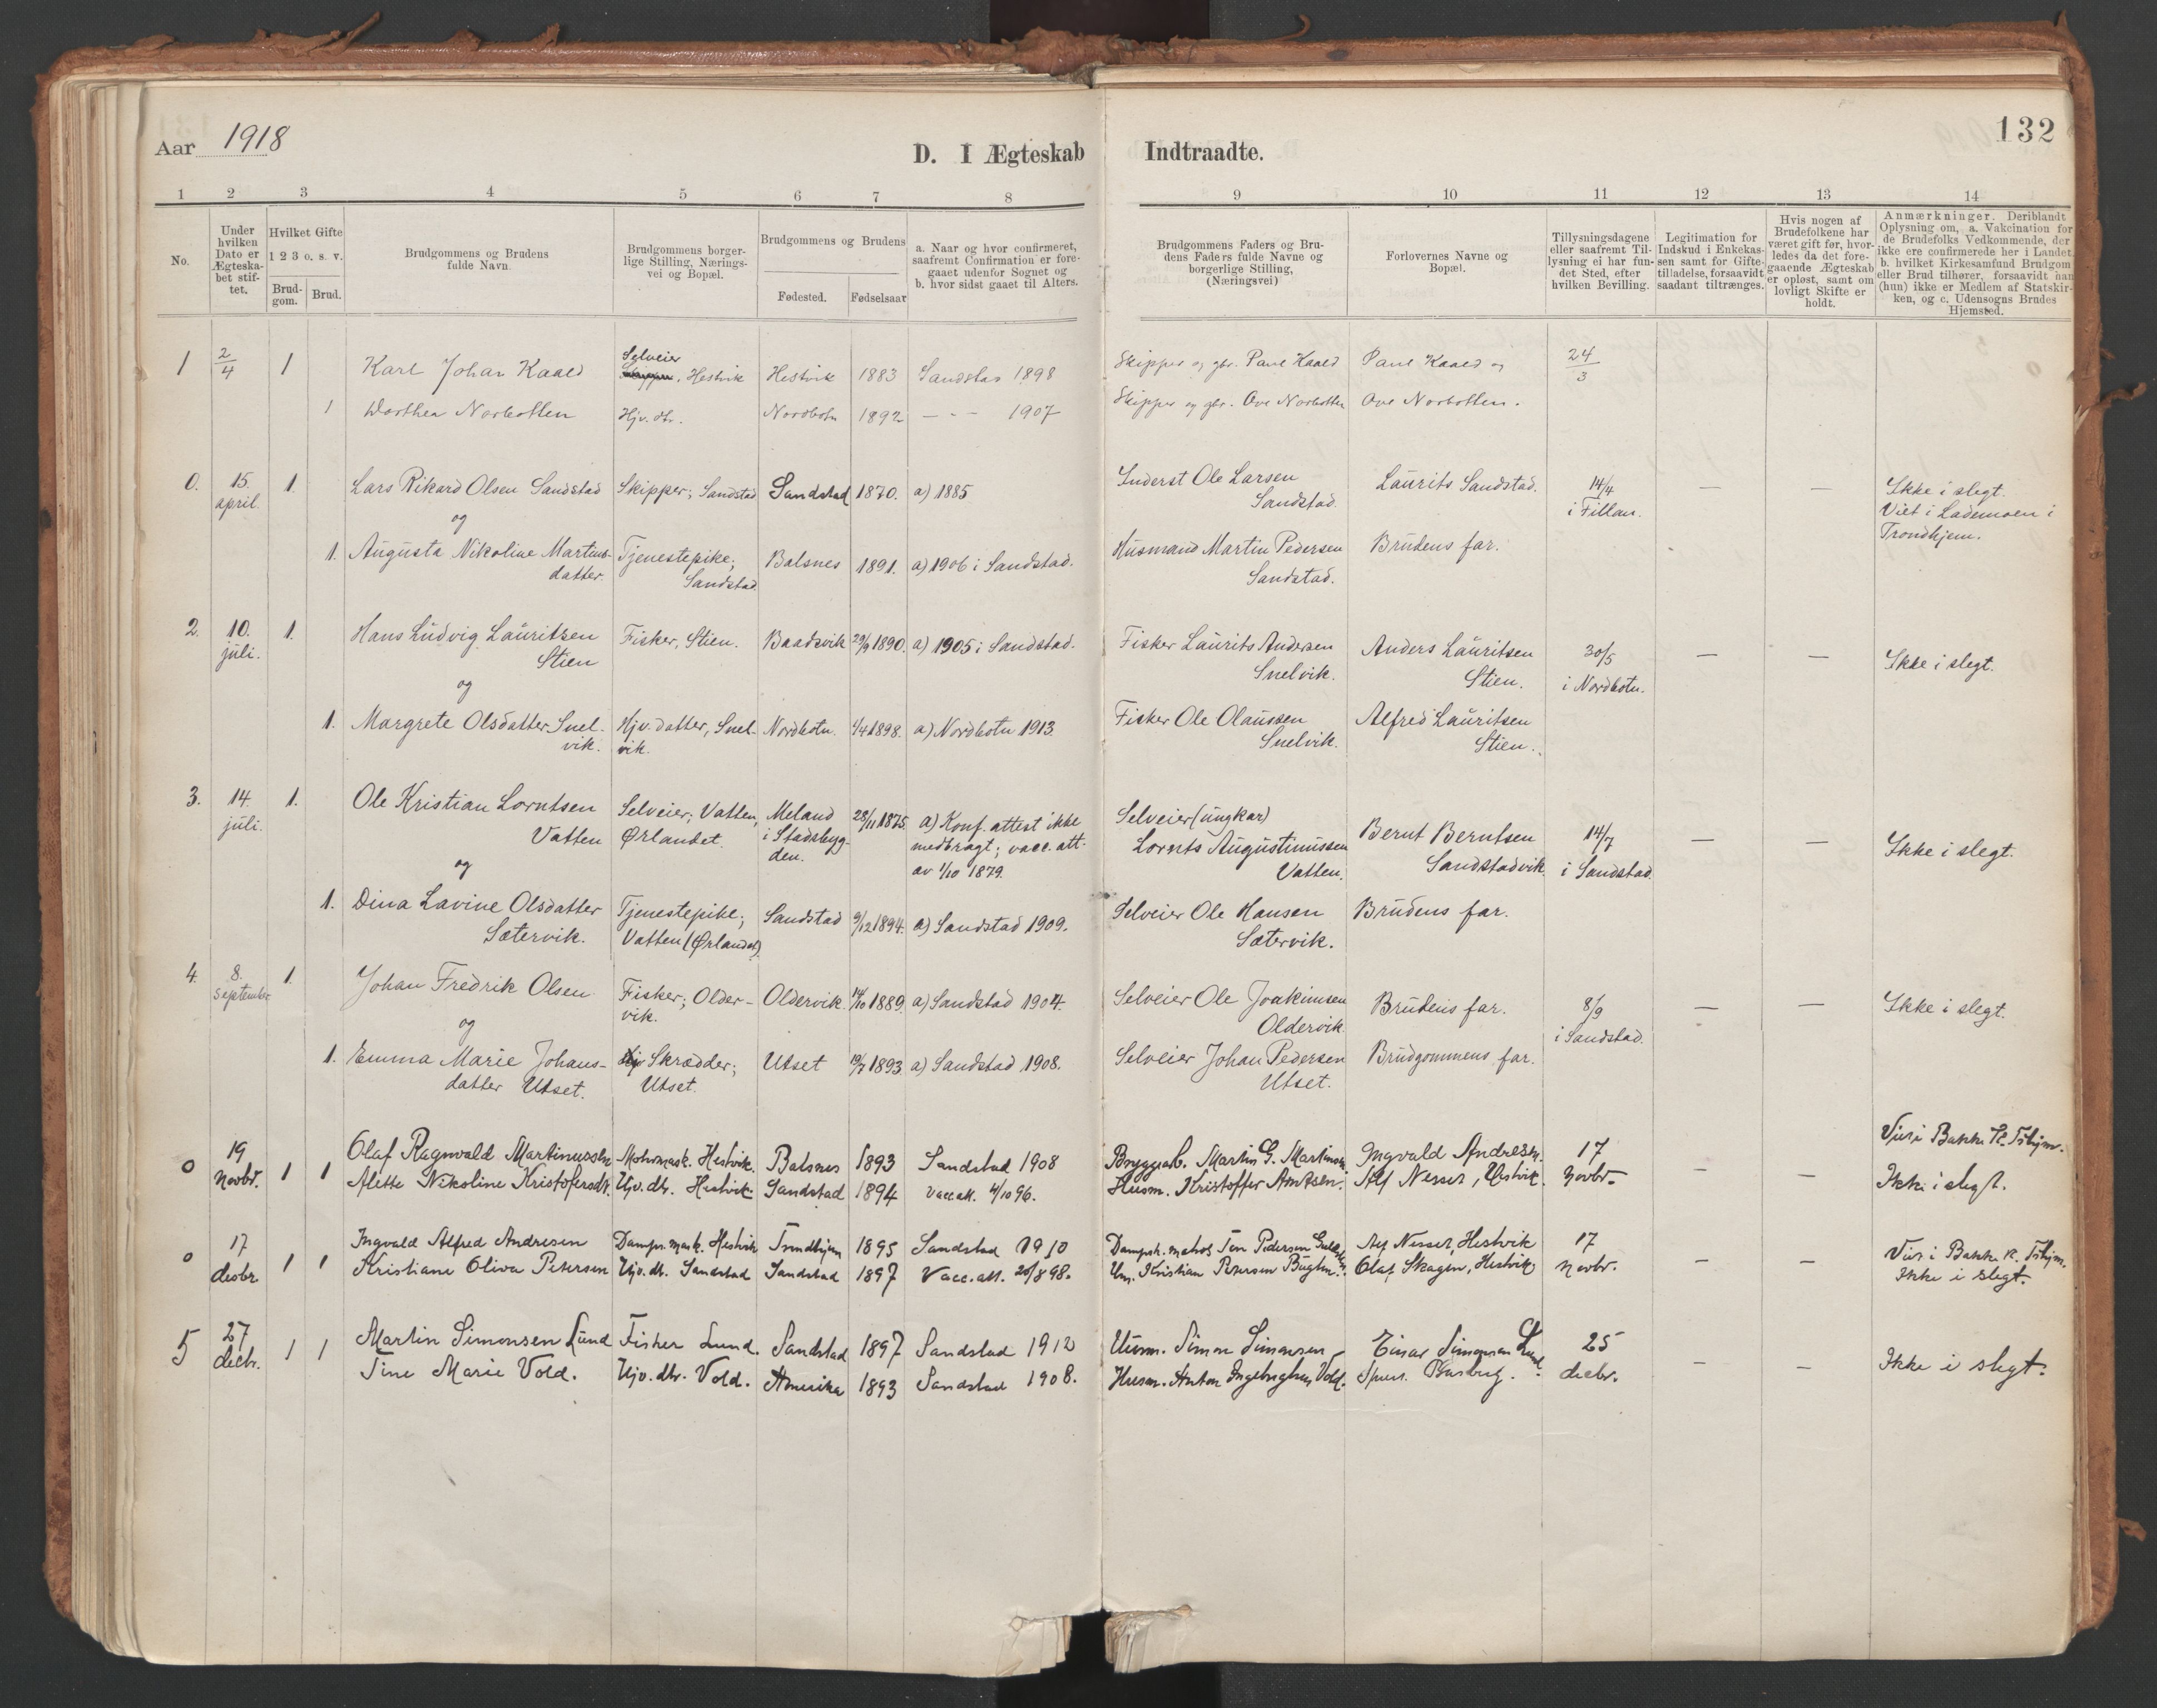 Aar 1918
D. I Ægteskab Indtraadte.
132
1 2 3 4 5 6 7 8 9 10 11 12 13 14
No.
Under hvilken Dato er Ægteskabet stiftet.
Hvilket Gifte 1 2 3 o. s. v.
Brudgom. Brud.
Brudgommens og Brudens fulde Navn
Brudgommens borgerlige Stilling, Næringsvei og Bopæl.
Brudgommens og Brudens
Fødested. Fødselsaar
a. Naar og hvor confirmeret, saafremt Confirmation er foregaaet udenfor Sognet og b. hvor sidst gaaet til Alters.
Brudgommens Faders og Brudens Faders fulde Navne og borgerlige Stilling, (Næringsvei)
Forlovernes Navne og Bopæl.
Tillysningsdagene eller saafremt Tillysning ei har fundet Sted, efter hvilken Bevilling.
Legitimation for Indskud i Enkekassen samt for Giftetilladelse, forsaavidt saadant tiltrænges.
Hvis nogen af Brudefolkene har været gift før, hvorledes da det foregaaende Ægteskab er opløst, samt om lovligt Skifte er holdt.
Anmærkninger. Deriblandt Oplysning om, a. Vakcination for de Brudefolks Vedkommende, der ikke ere confirmerede her i Landet, b. hvilket Kirkesamfund Brudgom eller Brud tilhører, forsaavidt han (hun) ikke er Medlem af Statskirken, og c. Udensogns Brudes Hjemsted.
1 2/4 1 Karl Johan Kaald Selveier, Hestvik Hestvik 1883 Sandstad 1898 Skipper og gbr. Paul Kaald Paul Kaald og 24/3
1 Dorthea Norbotten Hjv. dtr. Nordbotn 1892 — " — 1907 Skipper og gbr. Ove Norbotten Ove Norbotten.
0. 15. april. 1. Lars Rikard Olsen Sandstad Skipper; Sandstad Sandstad 1870. a) 1885 Inderst Ole Larsen Sandstad. Laurits Sandstad. 14/4 i Fillan. — — Ikke i slegt. Viet i Lademoen i Trondhjem.
og
1. Augusta Nikoline Martinsdatter Tjenestepike; Sandstad Balsnes 1891. a) 1906 i Sandstad. Husmand Martin Pedersen Sandstad. Brudens far.
2. 10. juli. 1. Hans Ludvig Lauritsen Stien Fisker, Stien. Baadsvik 29/9 1890. a) 1905 i Sandstad. Fisker Laurits Andersen Snelvik. Anders Lauritsen Stien. 30/5 i Nordbotn. — — Ikke i slegt.
og
1. Margrete Olsdatter Snelvik. Hjv. datter, Snelvik. Nordbotn. 1/4 1898. a) Nordbotn 1913. Fisker Ole Olaussen Snelvik. Alfred Lauritsen Stien.
3. 14. juli. 1. Ole Kristian Lorntsen Vatten Selveier; Vatten, Ørlandet. Meland i Stadsbygden. 28/11 1875. a) Konf. attest ikke medbragt; vacc. att. av 1/10 1879. Selveier (ungkar) Lornts Augustinussen Vatten. Bernt Berntsen Sandstadvik. 14/7 i Sandstad. — — Ikke i slegt.
og
1. Dina Lavine Olsdatter Sætervik. Tjenestepike; Vatten (Ørlandet). Sandstad 9/12 1894. a) Sandstad 1909. Selveier Ole Hansen Sætervik. Brudens far.
4. 8. September 1. Johan Fredrik Olsen Fisker; Oldervik. Oldervik. 14/10 1889. a) Sandstad 1904. Selveier Ole Joakimsen Oldervik. Brudens far. 8/9 i Sandstad. — — Ikke i slegt.
og
1. Emma Marie Johansdatter Utset. Skrædder; Utset. Utset 19/7 1893 a) Sandstad 1908. Selveier Johan Pedersen Utset. Brudgommens far.
0 19 Novbr. 1 1 Olaf Ragnvald Martinussen Hestvik. Balsnes 1893 Sandstad 1908 Martin G. Ingvald Andresen. 17 Novbr. — — Viet i Bakke K. Trhjm.
Alette Nikoline Kristofersdtr. Hjv. dtr. Hestvik. Sandstad 1894 Vacc.att. 4/10 96. Husm. Kristoffer Arntsen. Alf Nesset, Hestvik. Ikke i slegt.
0 17 desbr. 1 1 Ingvald Alfred Andresen Hestvik Trondhjem 1895 Sandstad 1910 Alf Nesset, Hestvik 17 Novbr. — — Viet i Bakke K. Trhjm.
Kristiane Oliva Petersen Hjv. dtr. Sandstad Sandstad 1897 Vacc. att. 20/8 98. Kristian Petersen Olaf Skagen, Hestvik Ikke i slegt.
5 27 decbr. 1 1 Martin Simonsen Lund Fisker Lund. Sandstad 1897 Sandstad 1912 Husm. Simon Simonsen Einar Simonsen Lund 25 decbr. — — Ikke i slegt.
Tine Marie Vold. Hjv. dtr. Vold. Amerika 1893 Sandstad 1908. Husm. Anton Vold.